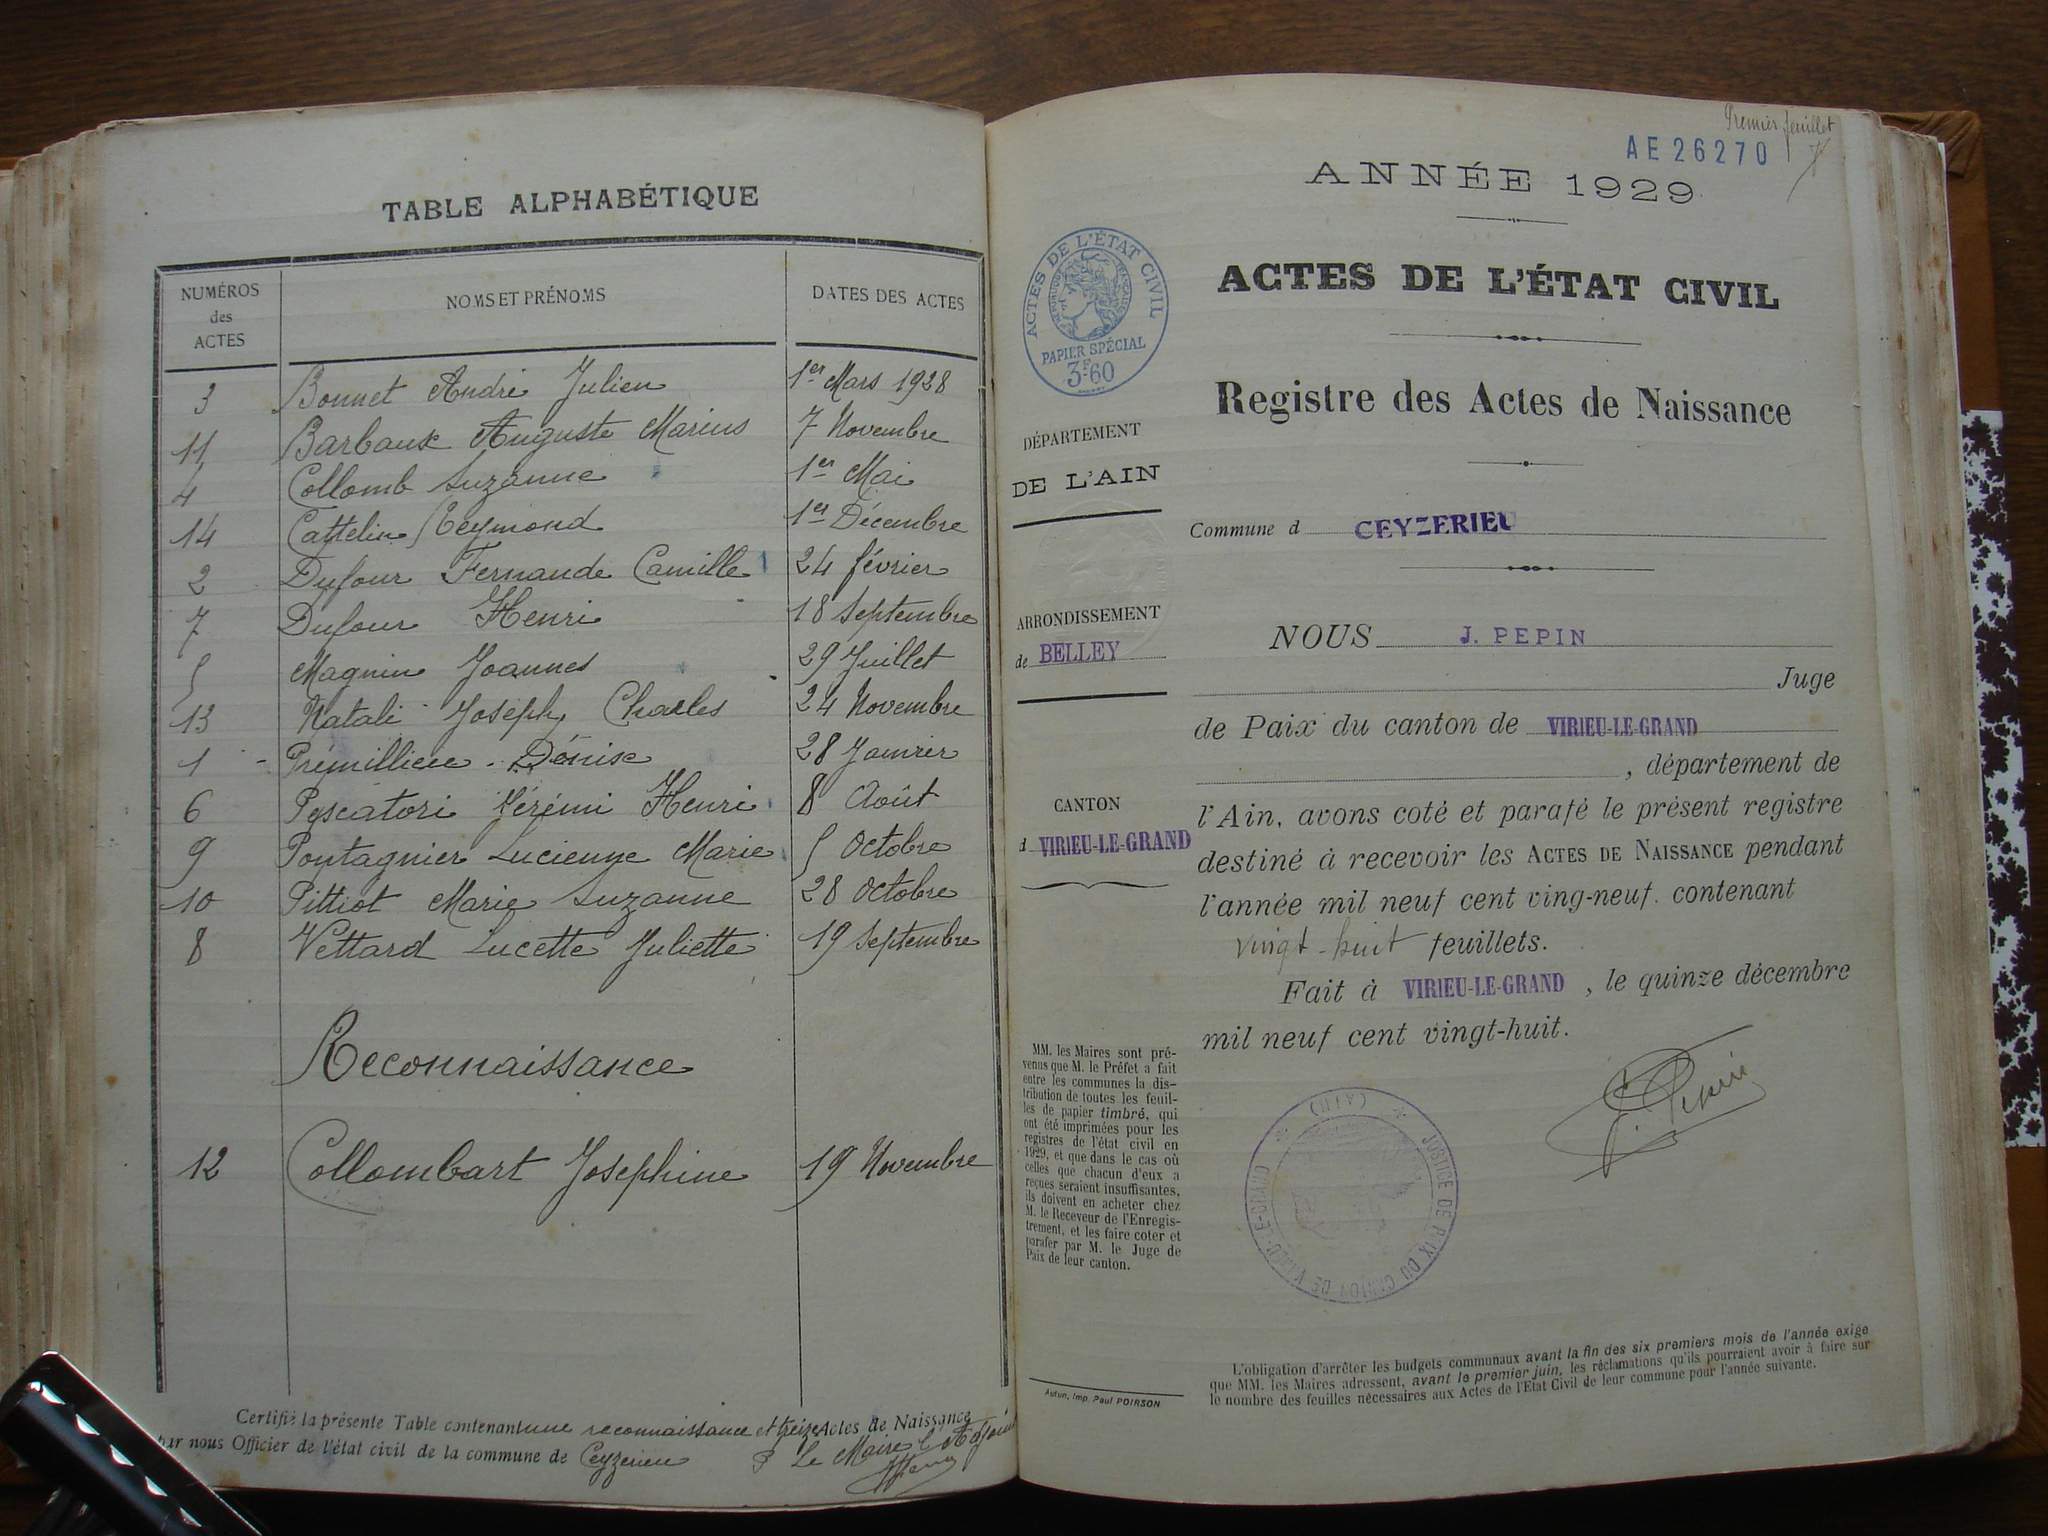 TABLE ALPHABÉTIQUE
NUMÉROS des ACTES
NOMS ET PRÉNOMS
DATES DES ACTES
3 Bonnet André Julien 1er Mars 1928
11 Barbaux Auguste Marius 7 Novembre
4 Collomb Suzanne 1er Mai
14 Cattelin Reymond 1er Décembre
2 Dufour Fernande Camille 24 février
7 Dufour Henri 18 Septembre
5 Magnin Joannes 29 Juillet
13 Natali Joseph, Charles 24 Novembre
1 - Prémilliere - Dénise 28 Janvier
6 Pescatori Jérémi Henri 8 Août
9 Pontagnier Lucienne Marie 5 Octobre
10 Pittiot Marie Suzanne 28 Octobre
8 Vettard Lucette Juliette 19 Septembre
Reconnaissance
12 Collombart Josephine 19 Novembre
Certifié la présente Table contenant une reconnaissance et treize Actes de Naissance
par nous Officier de l'état civil de la commune de Ceyzerieu
P Le Maire l'Adjoint
Premier feuillet
AE 26270
ANNÉE 1929
ACTES DE L'ÉTAT CIVIL
RÉPUBLIQUE FRANÇAISE
PAPIER SPÉCIAL
3F60
ACTES DE L'ÉTAT CIVIL
Registre des Actes de Naissance
DÉPARTEMENT
DE L'AIN
Commune d CEYZERIEU
ARRONDISSEMENT
de BELLEY
CANTON
d VIRIEU-LE-GRAND
NOUS J. PEPIN
Juge
de Paix du canton de VIRIEU-LE-GRAND
, département de
l'Ain, avons coté et parafé le présent registre
destiné à recevoir les ACTES DE NAISSANCE pendant
l'année mil neuf cent ving-neuf. contenant
vingt-huit feuillets.
Fait à VIRIEU-LE-GRAND , le quinze décembre
mil neuf cent vingt-huit.
J. Pepin
MM. les Maires sont pré-
venus que M. le Préfet a fait
entre les communes la dis-
tribution de toutes les feuil-
les de papier timbré, qui
ont été imprimées pour les
registres de l'état civil en
1929, et que dans le cas où
celles que chacun d'eux a
reçues seraient insuffisantes,
ils doivent en acheter chez
M. le Receveur de l'Enregis-
trement, et les faire coter et
parafer par M. le Juge de
Paix de leur canton.
JUSTICE DE PAIX DU CANTON DE VIRIEU-LE-GRAND (AIN)
Autun, Imp. Paul POIRSON
L'obligation d'arrêter les budgets communaux avant la fin des six premiers mois de l'année exige
que MM. les Maires adressent, avant le premier juin, les réclamations qu'ils pourraient avoir à faire sur
le nombre des feuilles nécessaires aux Actes de l'Etat Civil de leur commune pour l'année suivante.